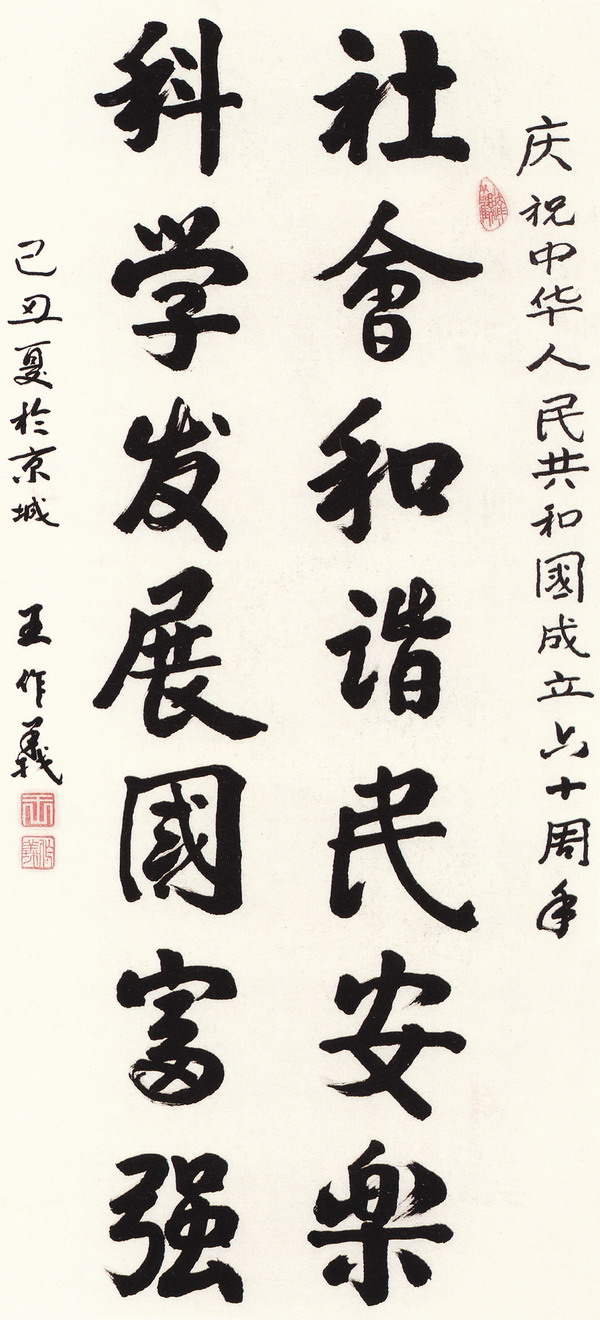 庆祝中华人民共和國成立六十周年
社會和谐民安樂
科学发展國富强
己丑夏於京城
王作義